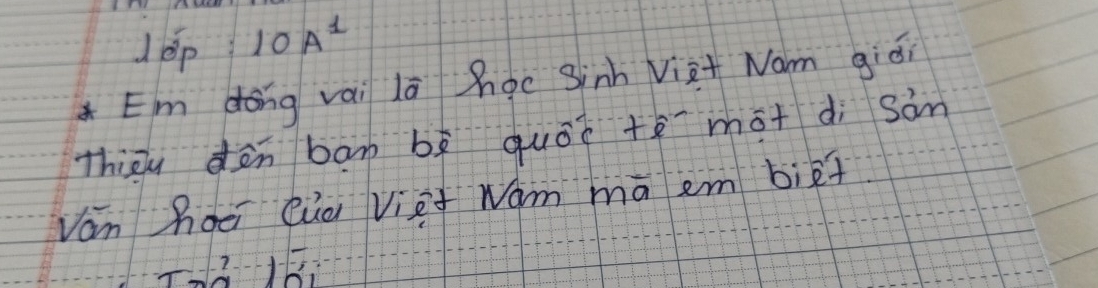 Lớp : 10A1
* Em đóng vai là học sinh Việt Nam giới
Thiệu đến bạn bè quốc tế một di sản
Văn hoá của Việt Nam mà em biết.
Trả lời